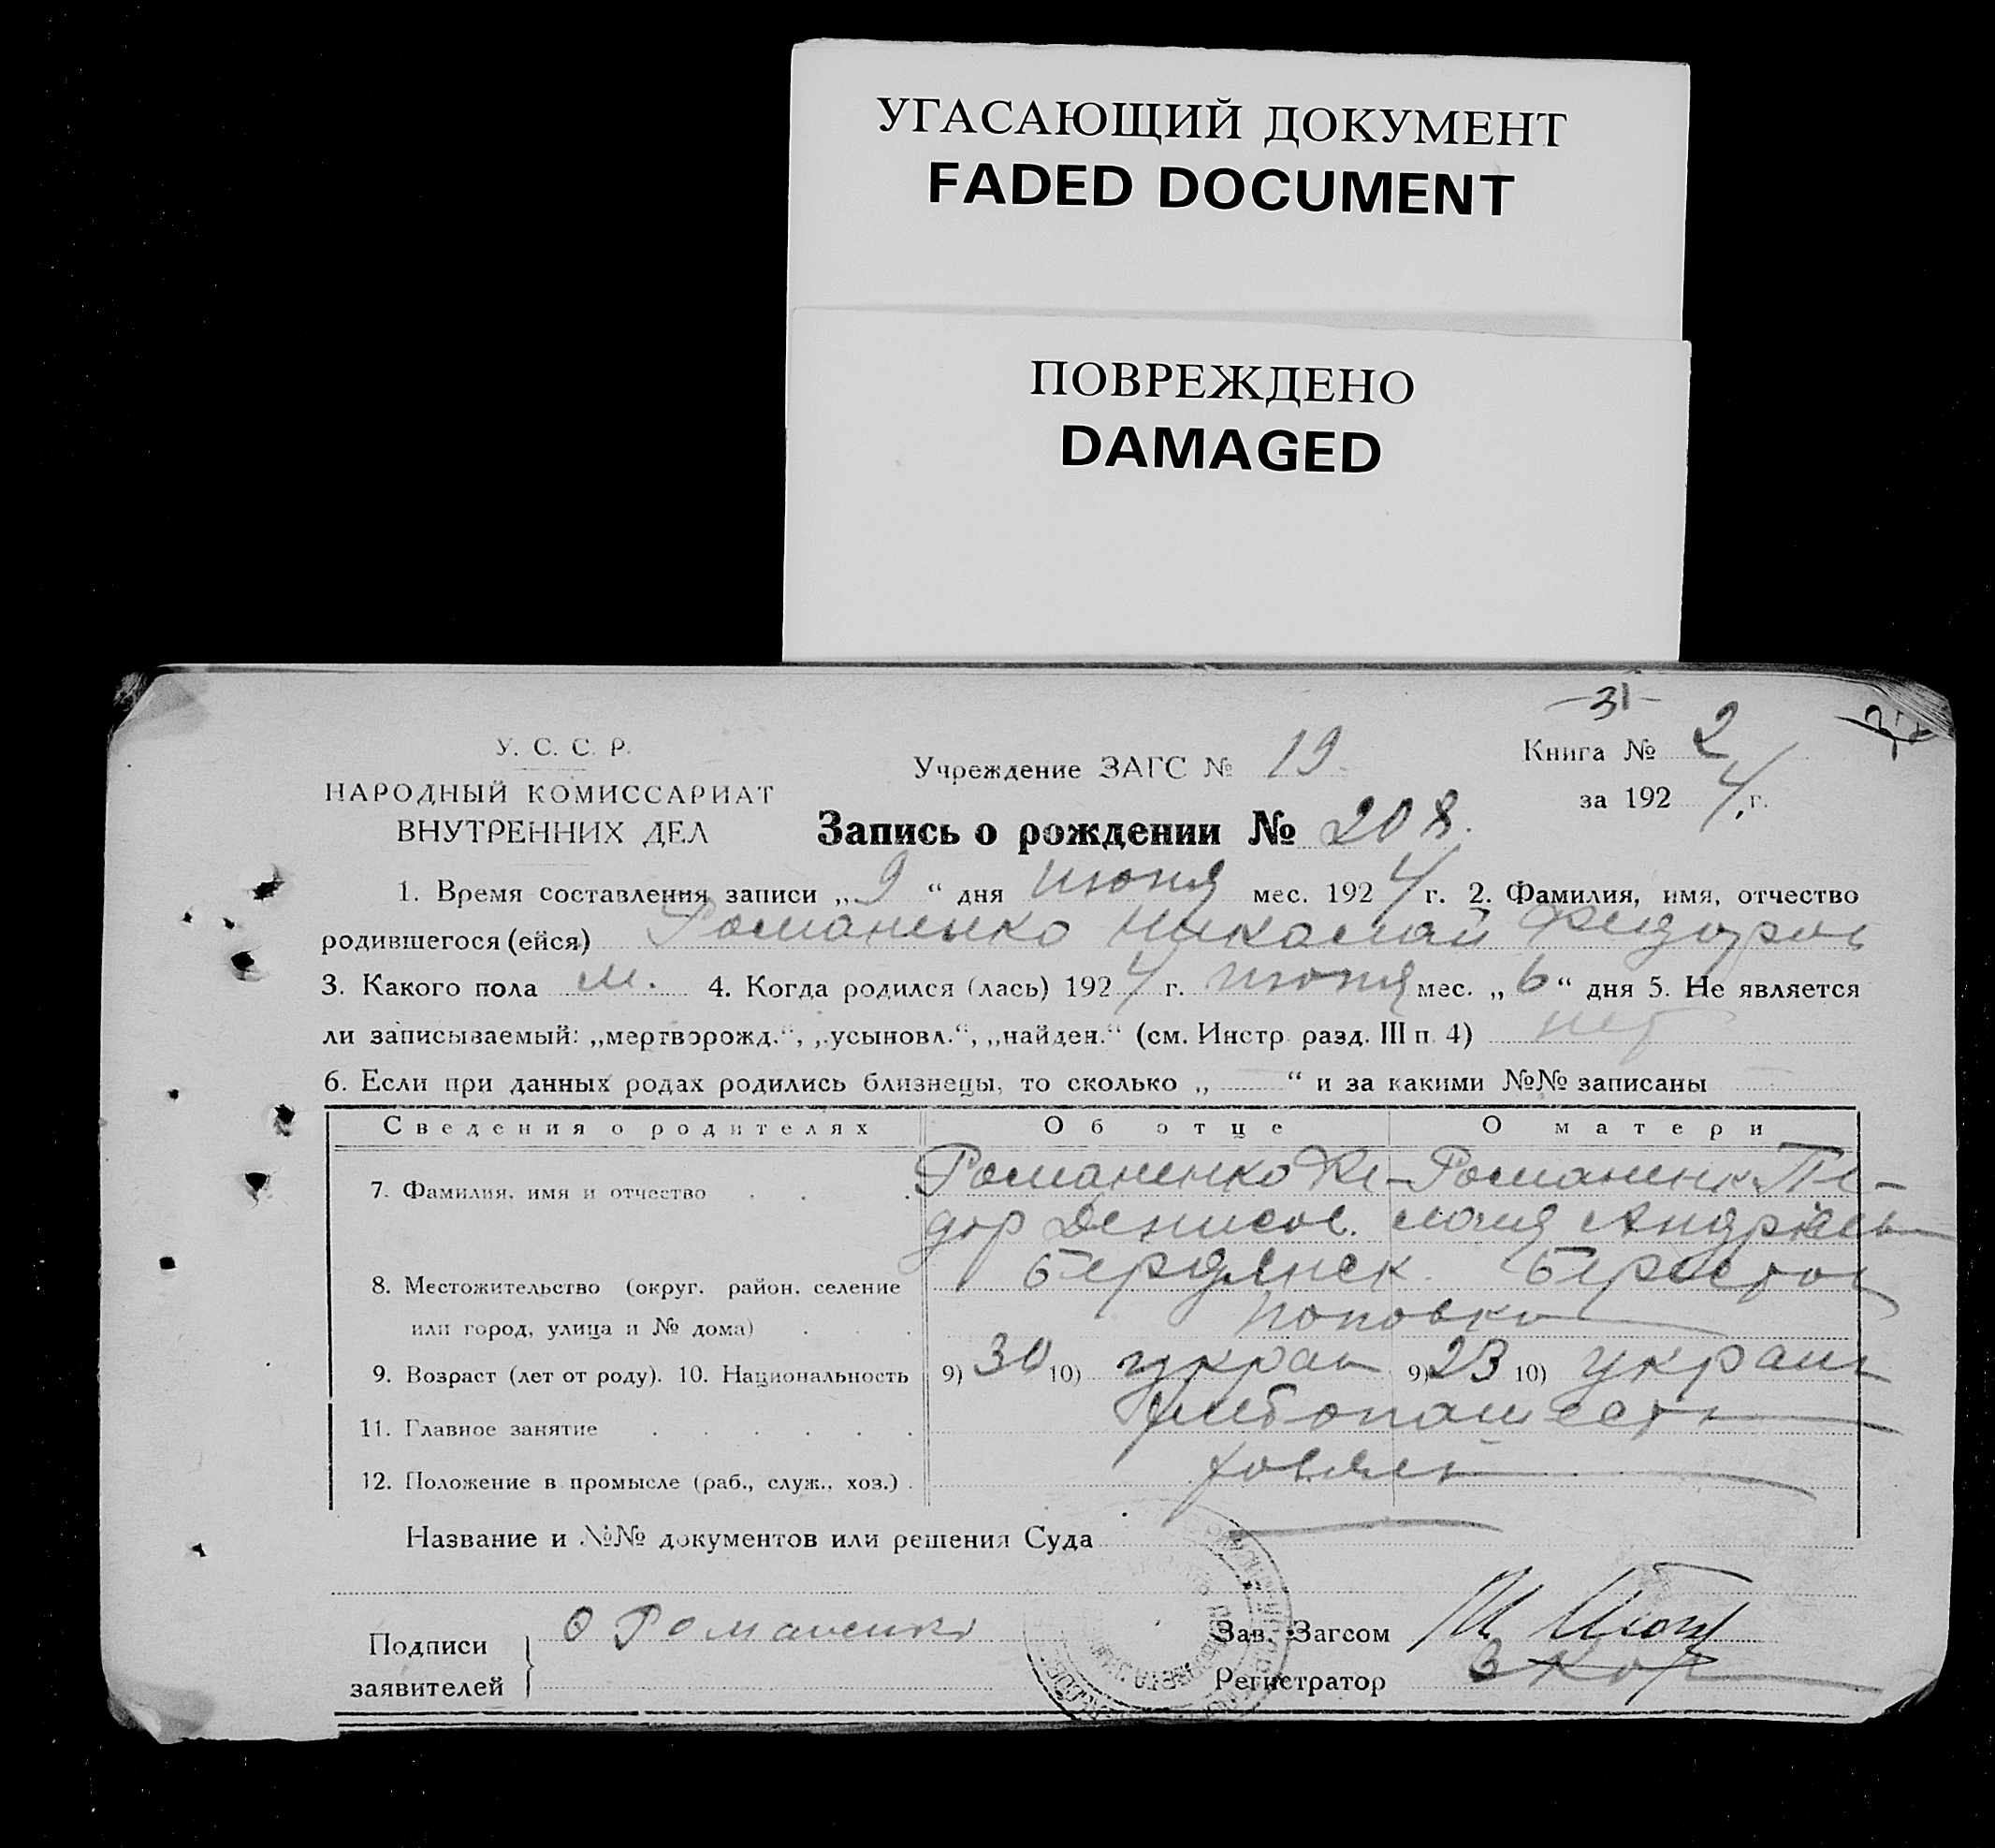 УГАСАЮЩИЙ ДОКУМЕНТ
FADED DOCUMENT
ПОВРЕЖДЕНО
DAMAGED
-31-
У. С. С. Р.
НАРОДНЫЙ КОМИССАРИАТ
ВНУТРЕННИХ ДЕЛ
Учреждение ЗАГС № 19
Книга № 2
за 192 4 г.
Запись о рождении № 208.
1. Время составления записи „ 9 “ дня июня мес. 192 4 г. 2. Фамилия, имя, отчество
родившегося (ейся) Романенко Николай Федоров
3. Какого пола м. 4. Когда родился (лась) 192 4 г. июня мес. „ 6 “ дня 5. Не является
ли записываемый: „мертворожд.“, „усыновл.“, „найден.“ (см. Инстр. разд. III п. 4) нет
6. Если при данных родах родились близнецы, то сколько „ “ и за какими №№ записаны
Сведения о родителях Об отце О матери
7. Фамилия, имя и отчество Романенко Фе- Романенк Пе-
дор Денисов. лагия Андреев
8. Местожительство (округ. район. селение Бердянск. Берестов
или город, улица и № дома) Поповка
9. Возраст (лет от роду). 10. Национальность 9) 30 10) укран 9) 23 10) украин
11. Главное занятие хлебопашест
12. Положение в промысле (раб., служ., хоз.) хозяев
Название и №№ документов или решения Суда
Подписи
заявителей
Ф Романенко
Зав. Загсом
Регистратор